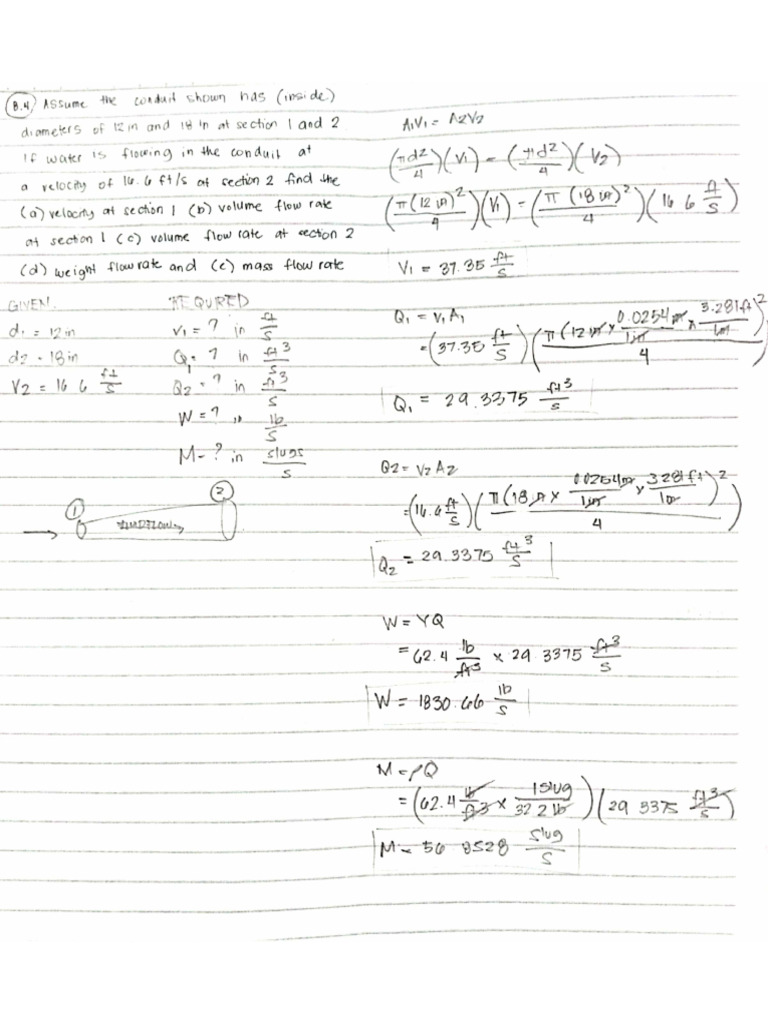 8.4) Assume the conduit shown has (inside)
diameters of 12 in and 18 in at section 1 and 2
If water is flowing in the conduit at
a velocity of 16.6 ft/s at section 2 find the
(a) velocity at section 1 (b) volume flow rate
at section 1 (c) volume flow rate at section 2
(d) weight flow rate and (e) mass flow rate
GIVEN.
d1 = 12 in
d2 - 18 in
V2 = 16 6 ft/s
REQURED
V1 = ? in ft/s
Q1 = ? in ft3/s
Q2 = ? in ft3/s
W = ? in lb/s
M - ? in slugs/s
1
2
A1V1 = A2V2
(πd2/4)(V1) = (πd2/4)(V2)
(π(12 in)2/4)(V1) = (π(18 in)2/4)(16 6 ft/s)
V1 = 37.35 ft/s
Q1 = V1A1
= (37.35 ft/s)(π(12 in x 0.0254m/1in x 3.281ft/1m)2/4)
Q1 = 29.3375 ft3/s
Q2 = V2 A2
= (16.6 ft/s)(π(18 in x 0.0254m/1in x 3.281ft/1m)2/4)
Q2 = 29.3375 ft3/s
W = γQ
= 62.4 lb/ft3 x 29.3375 ft3/s
W = 1830.66 lb/s
M = ρQ
= (62.4 lb/ft3 x 1slug/32.2 lb)(29 3375 ft3/s)
M - 56 8528 slug/s